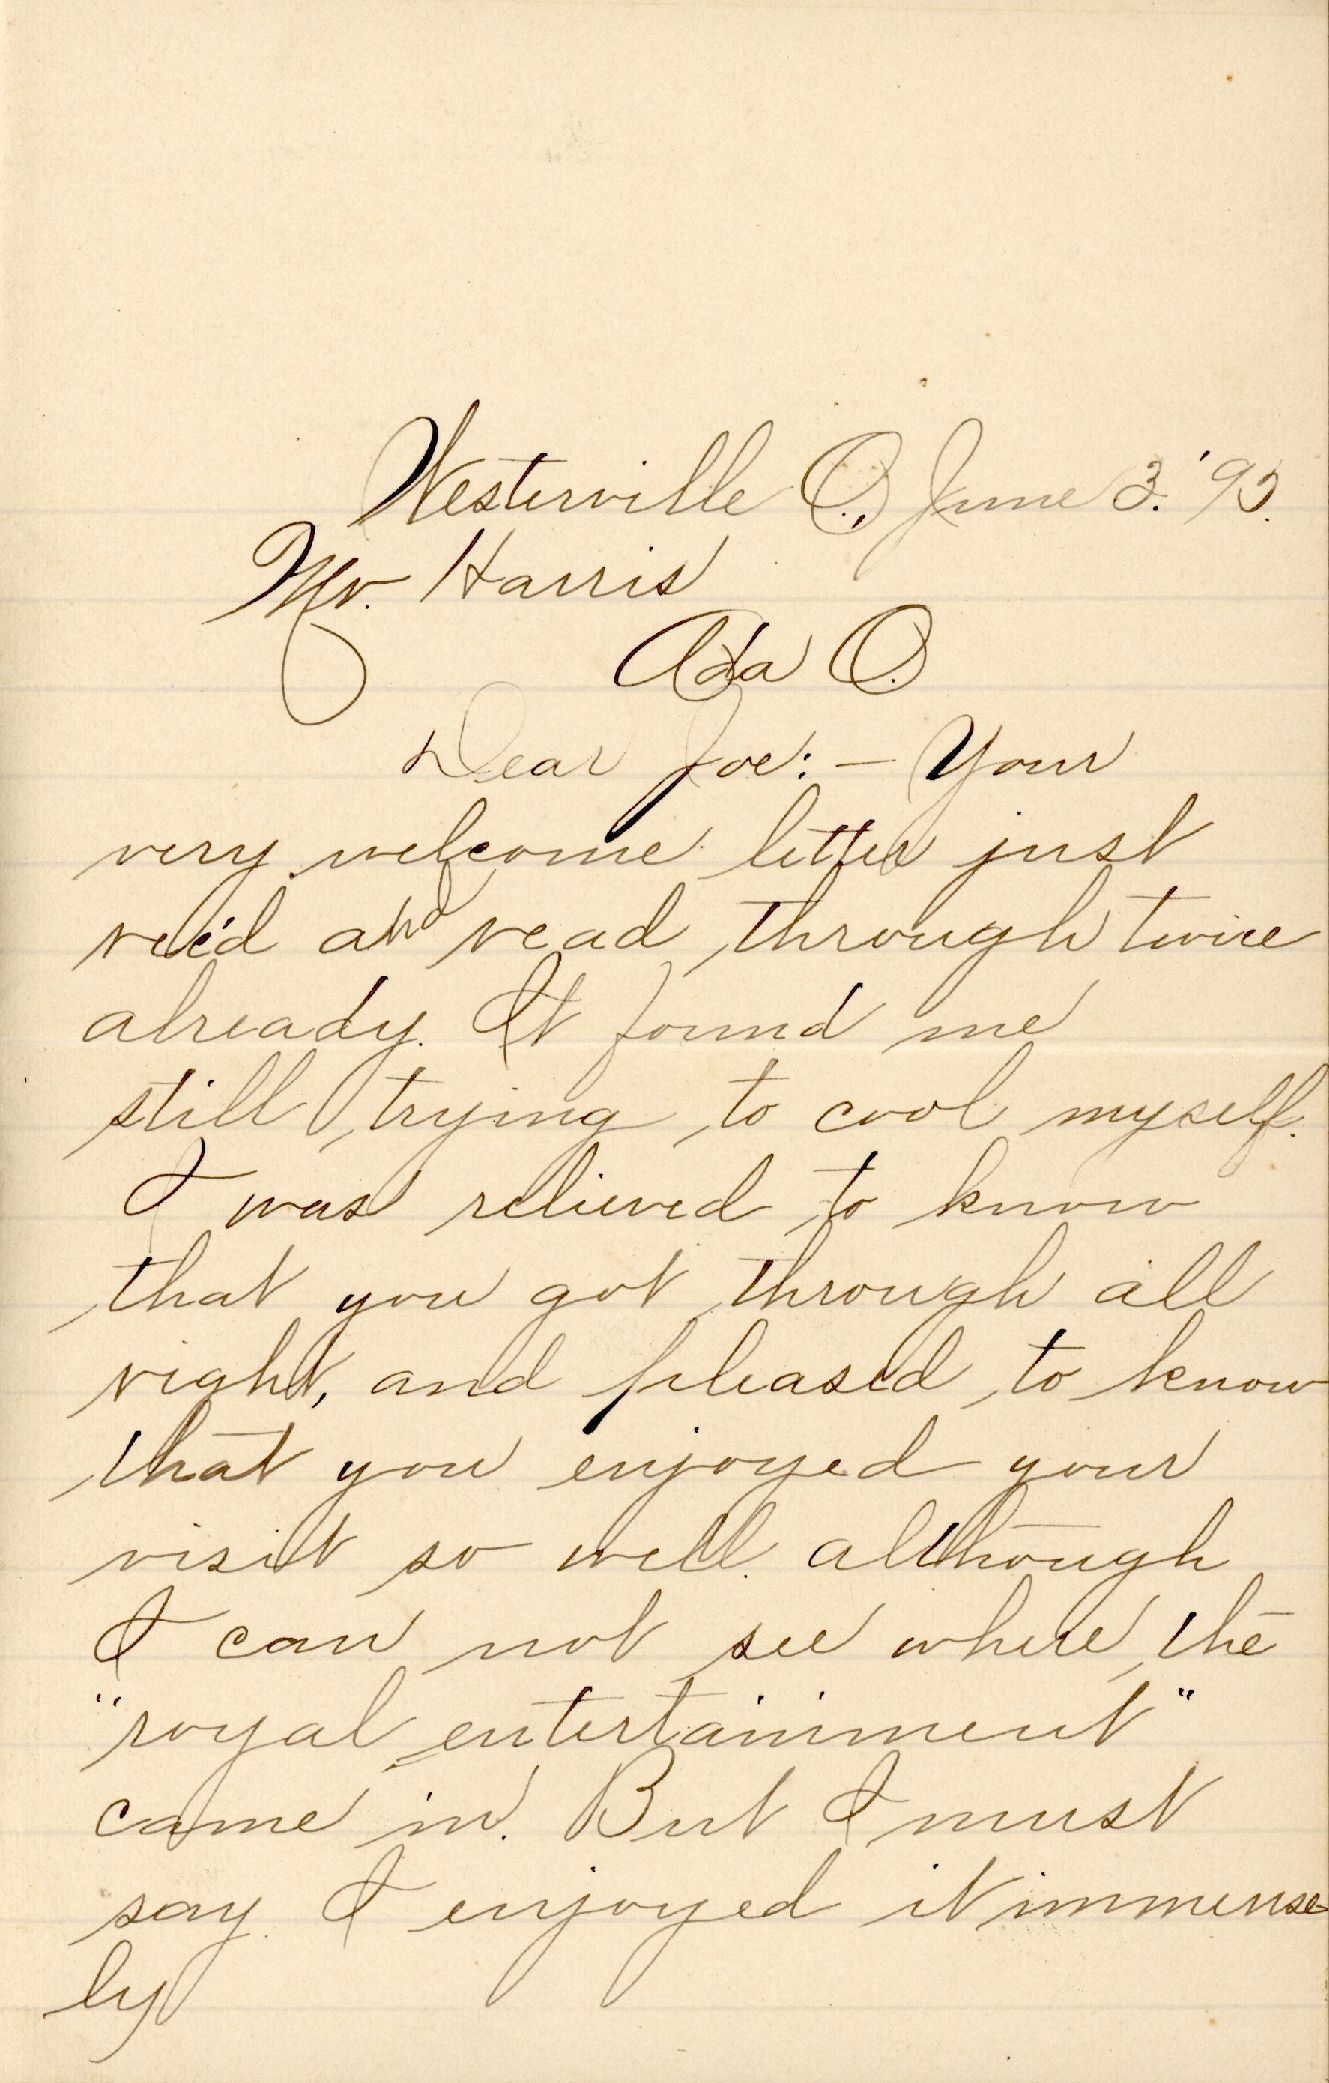 Westerville O., June 3. '95.
Mr. Harris
Ada O.
Dear Joe: — Your
very welcome letter just
rec'd and read through twice
already. It found me
still trying to cool myself.
I was relieved to know
that you got through all
right, and pleased to know
that you enjoyed your
visit so well although
I can not see where the
"royal entertainment"
came in. But I must
say I enjoyed it immense
ly